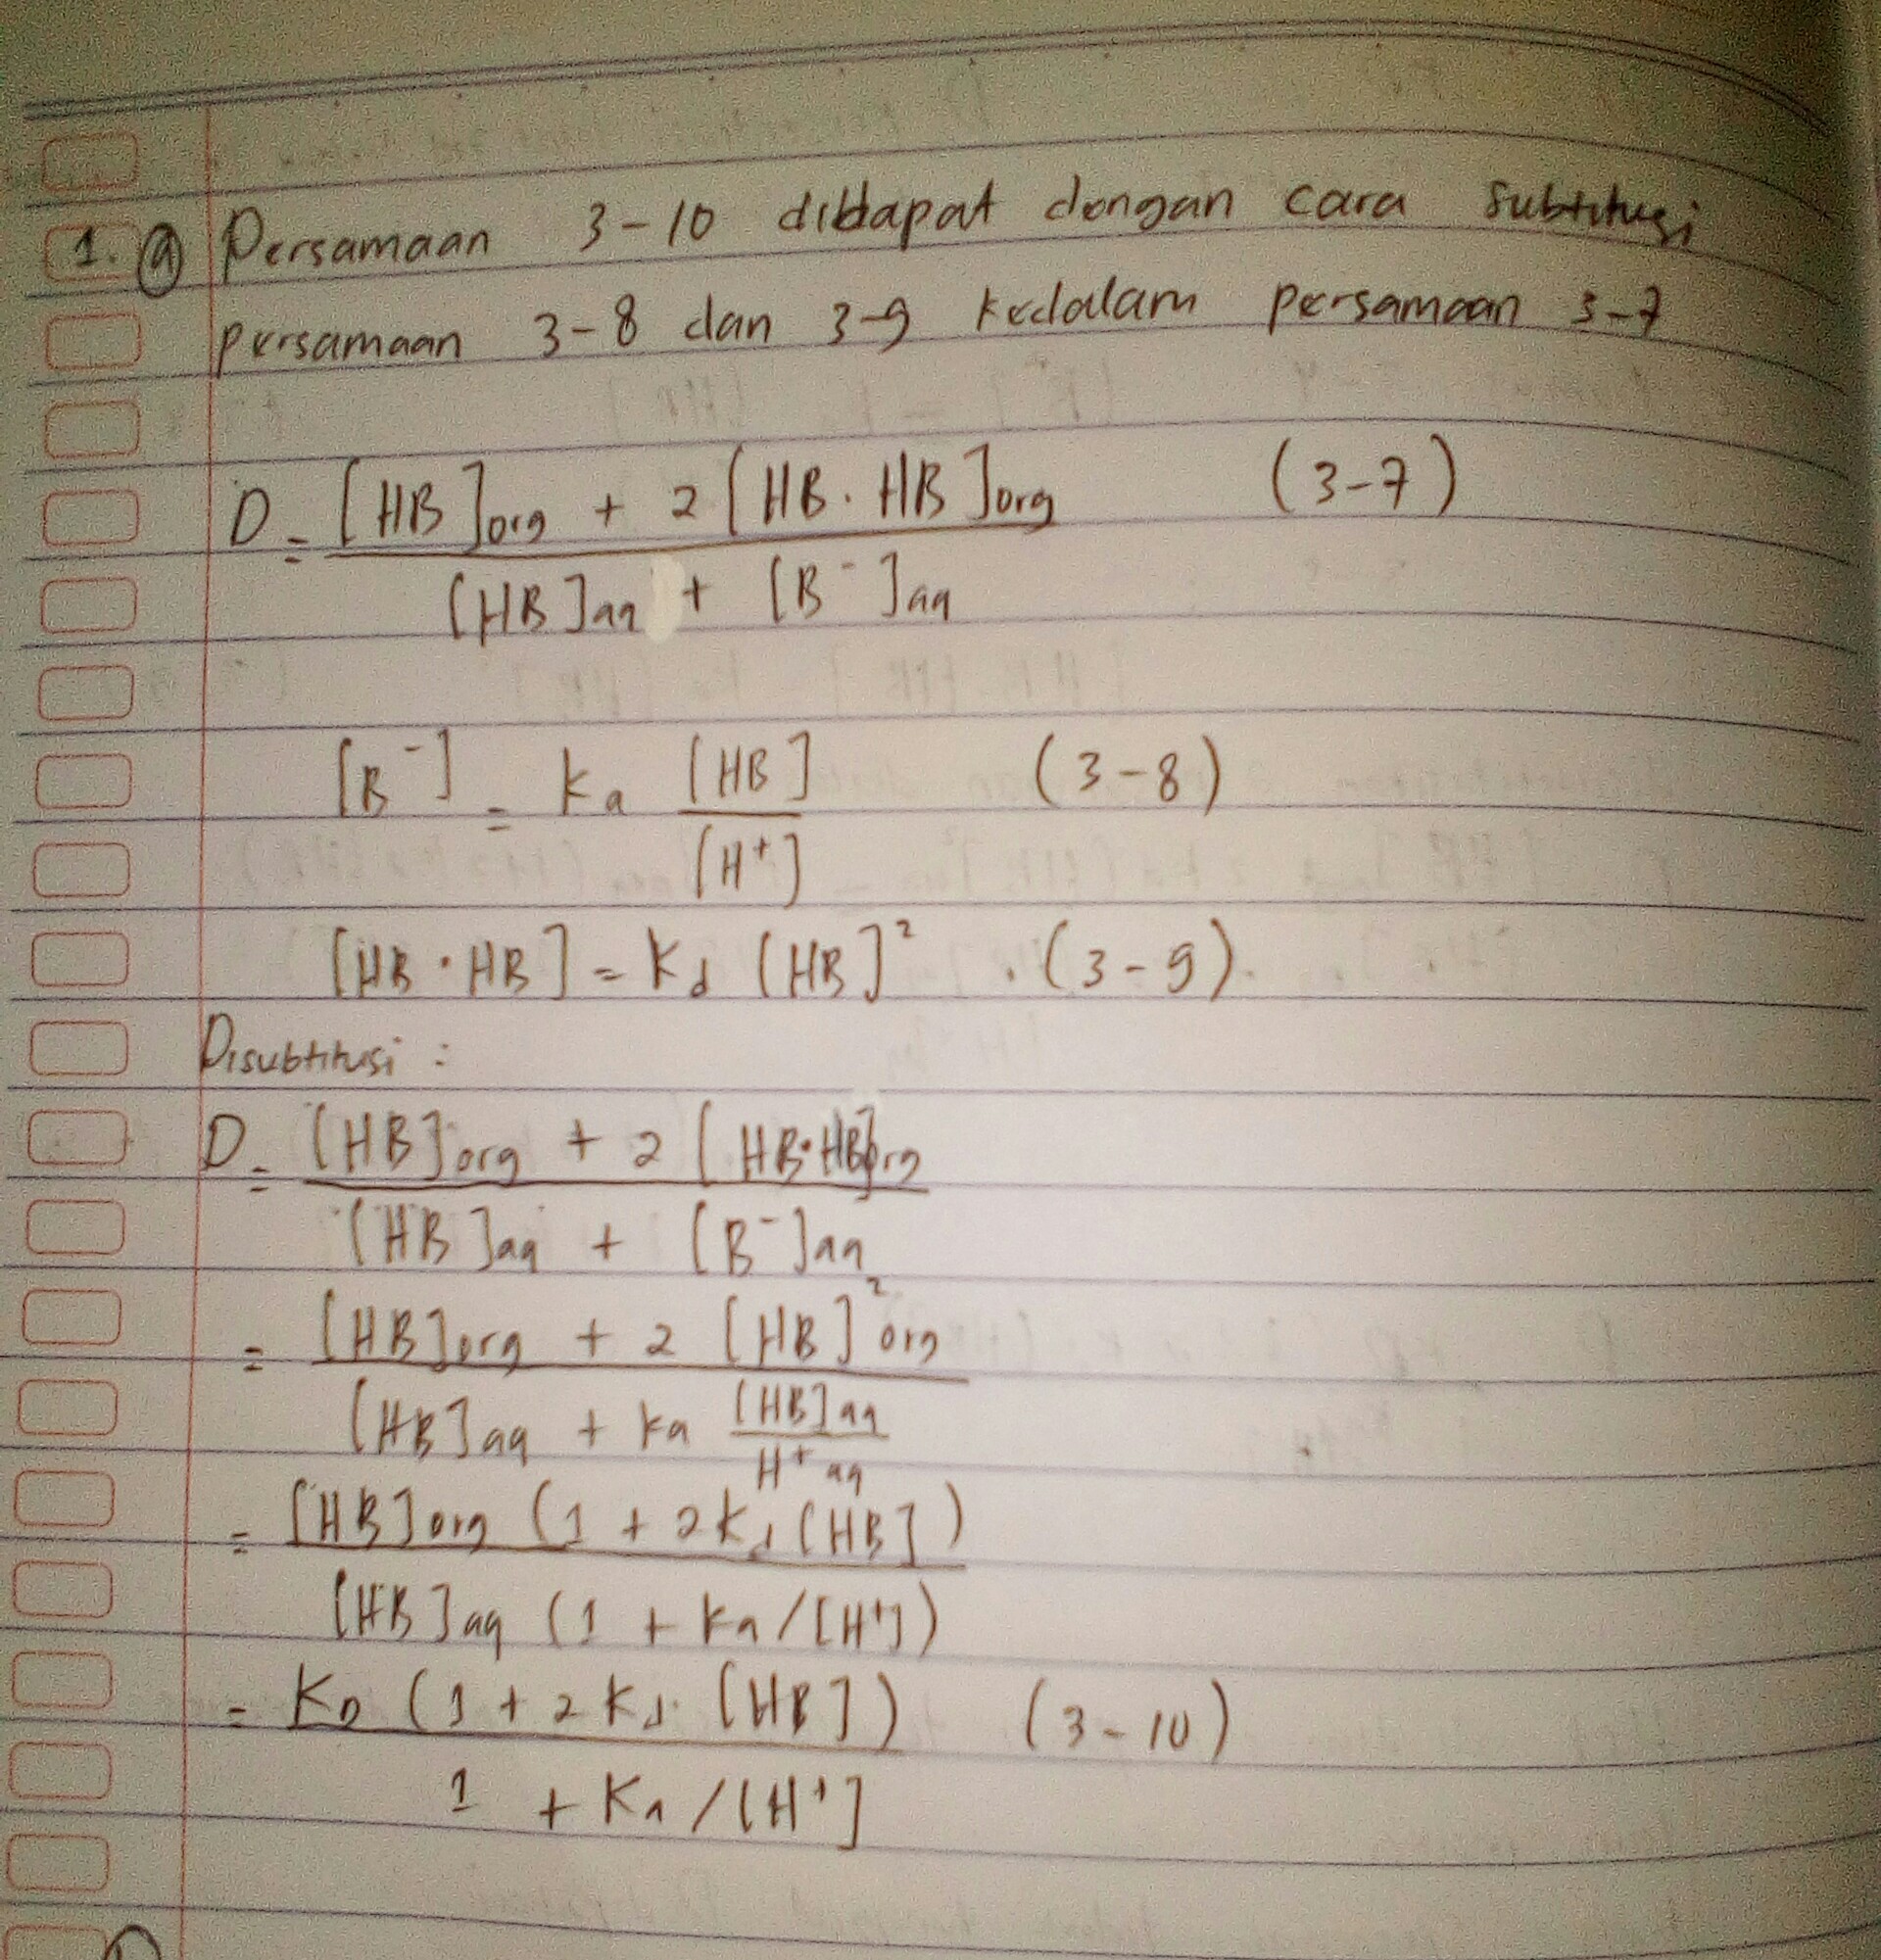 1. a Persamaan 3-10 didapat dengan cara subtitusi
persamaan 3-8 dan 3-9 kedalam persamaan 3-7
D = [HB]org + 2 [HB · HB]org (3-7)
[HB]aq + [B⁻]aq
[B⁻] = Ka [HB] (3-8)
[H⁺]
[HB · HB] = Kd [HB]² . (3-9).
Disubtitusi :
D = [HB]org + 2 [HB·HB]org
[HB]aq + [B⁻]aq
= [HB]org + 2 [HB]²org
[HB]aq + Ka [HB]aq
H⁺aq
= [HB]org (1 + 2Kd [HB])
[HB]aq (1 + Ka/[H⁺])
= KD (1 + 2Kd. [HB]) (3-10)
1 + Ka/[H⁺]